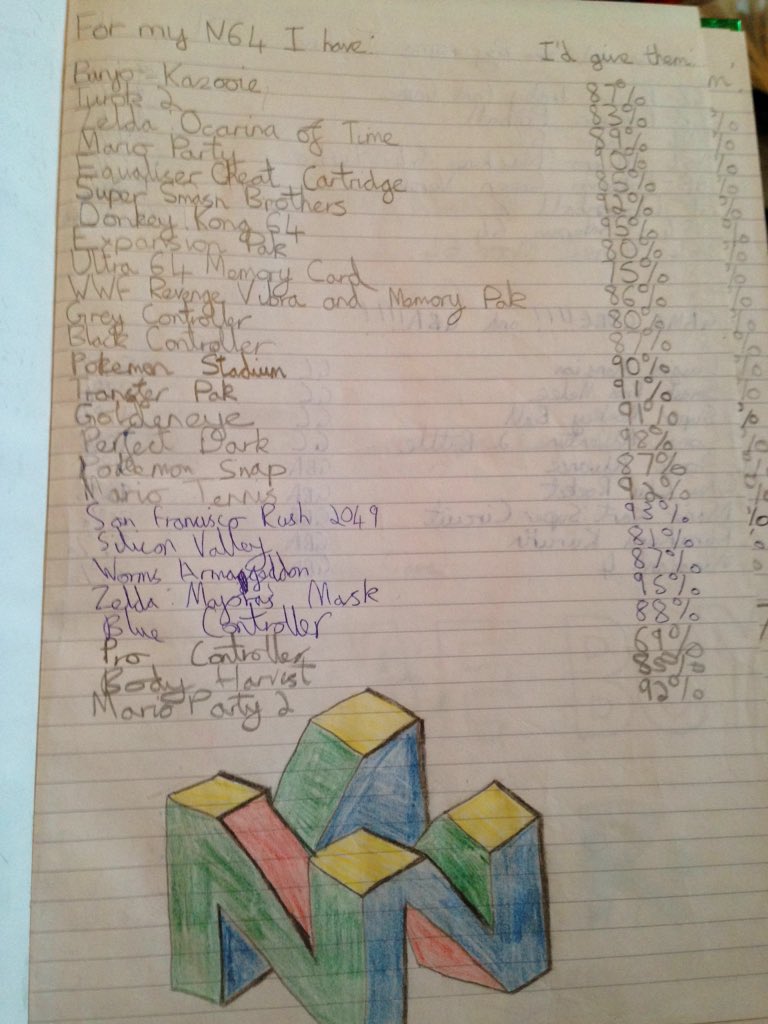 For my N64 I have: I'd give them:
Banjo-Kazooie 87%
Turok 2 83%
Zelda: Ocarina of Time 89%
Mario Party 90%
Equaliser Cheat Cartridge 85%
Super Smash Brothers 92%
Donkey Kong 64 95%
Expansion Pak 80%
Ultra 64 Memory Card 75%
WWF Revenge Vibra and Memory Pak 86%
Grey Controller 80%
Black Controller 87%
Pokemon Stadium 90%
Transfer Pak 91%
Goldeneye 91%
Perfect Dark 98%
Pokemon Snap 87%
Mario Tennis 92%
San Francisco Rush 2049 93%
Silicon Valley 81%
Worms Armaggeddon 87%
Zelda: Majoras Mask 95%
Blue Controller 88%
Pro Controller 69%
Body Harvist 88%
Mario Party 2 92%